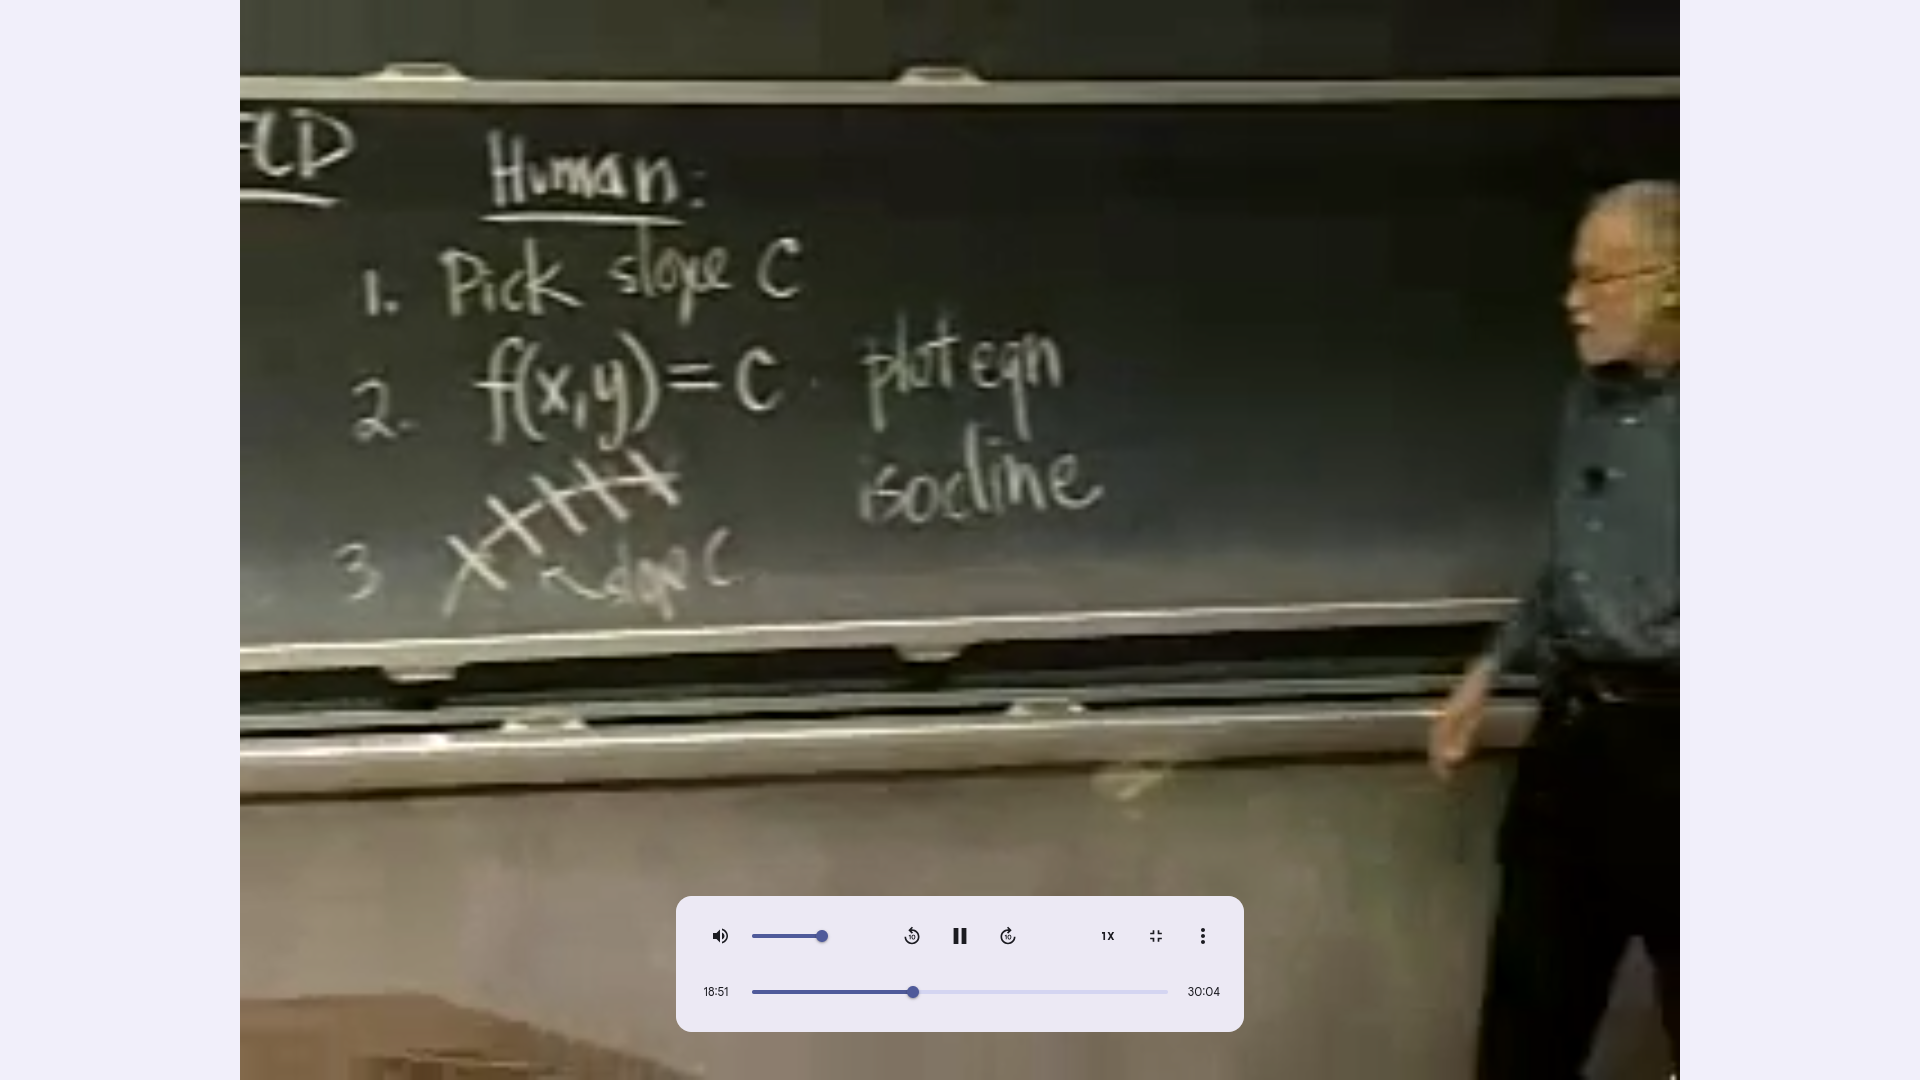 Human:
1. Pick slope C
2. f(x,y) = C. plot eqn
isocline
3 slope C
10
10
1X
18:51
30:04